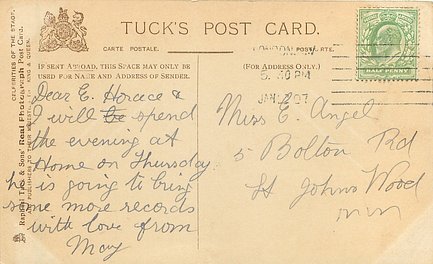 TUCK'S POST CARD.
CARTE POSTALE.
POSTKARTE.
IF SENT ABROAD, THIS SPACE MAY ONLY BE
USED FOR NAME AND ADDRESS OF SENDER.
(FOR ADDRESS ONLY.)
CELEBRITIES OF THE STAGE.
Raphael Tuck & Sons' Real Photograph Post Card.
PUBLISHERS TO THEIR MAJESTIES KING & QUEEN.
5. 30 PM
JAN 07
HALF PENNY
Dear E. Horace &
I will be spend
the evening at
Home on Thursday
he is going to bring
some more records
with love from
May
Miss E. Angel
5 Bolton Rd
St Johns Wood
NW